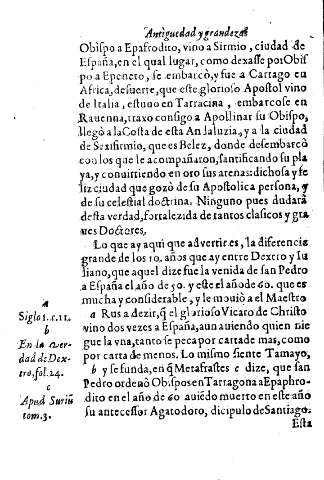 Antiguedad y grandezas
Obispo a Epafrodito, vino a Sirmio, ciudad de
España, en el qual lugar, como dexasse por Obis
po a Epeneto, se embarcò, y fue a Cartago en
Africa, desuerte, que este glorioso Apostol vino
de Italia, estuuo en Tarracina, embarcose en
Rauenna, traxo consigo a Apollinar su Obispo,
llegò a la Costa de esta Andaluzia, y a la ciudad
de Sexifirmio, que es Belez, donde desembarcò
con los que le acompañaron, santificando su pla
ya, y conuirtiendo en oro sus arenas: dichosa y fe
liz ciudad que gozò de su Apostolica persona, y
de su celestial doctrina. Ninguno pues dudarà
desta verdad, fortalezida de tantos clasicos y gra
ues Doctores.
Lo que ay aqui que advertir es, la diferencia
grande de los 10. años que ay entre Dextro y Iu
liano, que aquel dize fue la venida de san Pedro
a España el año de 50. y este el año de 60. que es
mucha y considerable, y le mouiò al Maestro
a Rus a dezir, q̃ el glorioso Vicaro de Christo
vino dos vezes a España, aun auiendo quien nie
gue la vna, tanto se peca por carta de mas, como
por carta de menos. Lo mismo siente Tamayo,
b y se funda, en q̃ Metafrastes c dize, que san
Pedro ordenò Obispos en Tarragona a Epaphro-
dito en el año de 60 auiẽdo muerto en este año
su antecessor Agatodoro, dicipulo de Santiago.
Esta
a
Siglo 1. c. 11.
b
En la Ver-
dad de Dex-
tro, fol. 24.
c
Apud Suriũ
tom. 3.